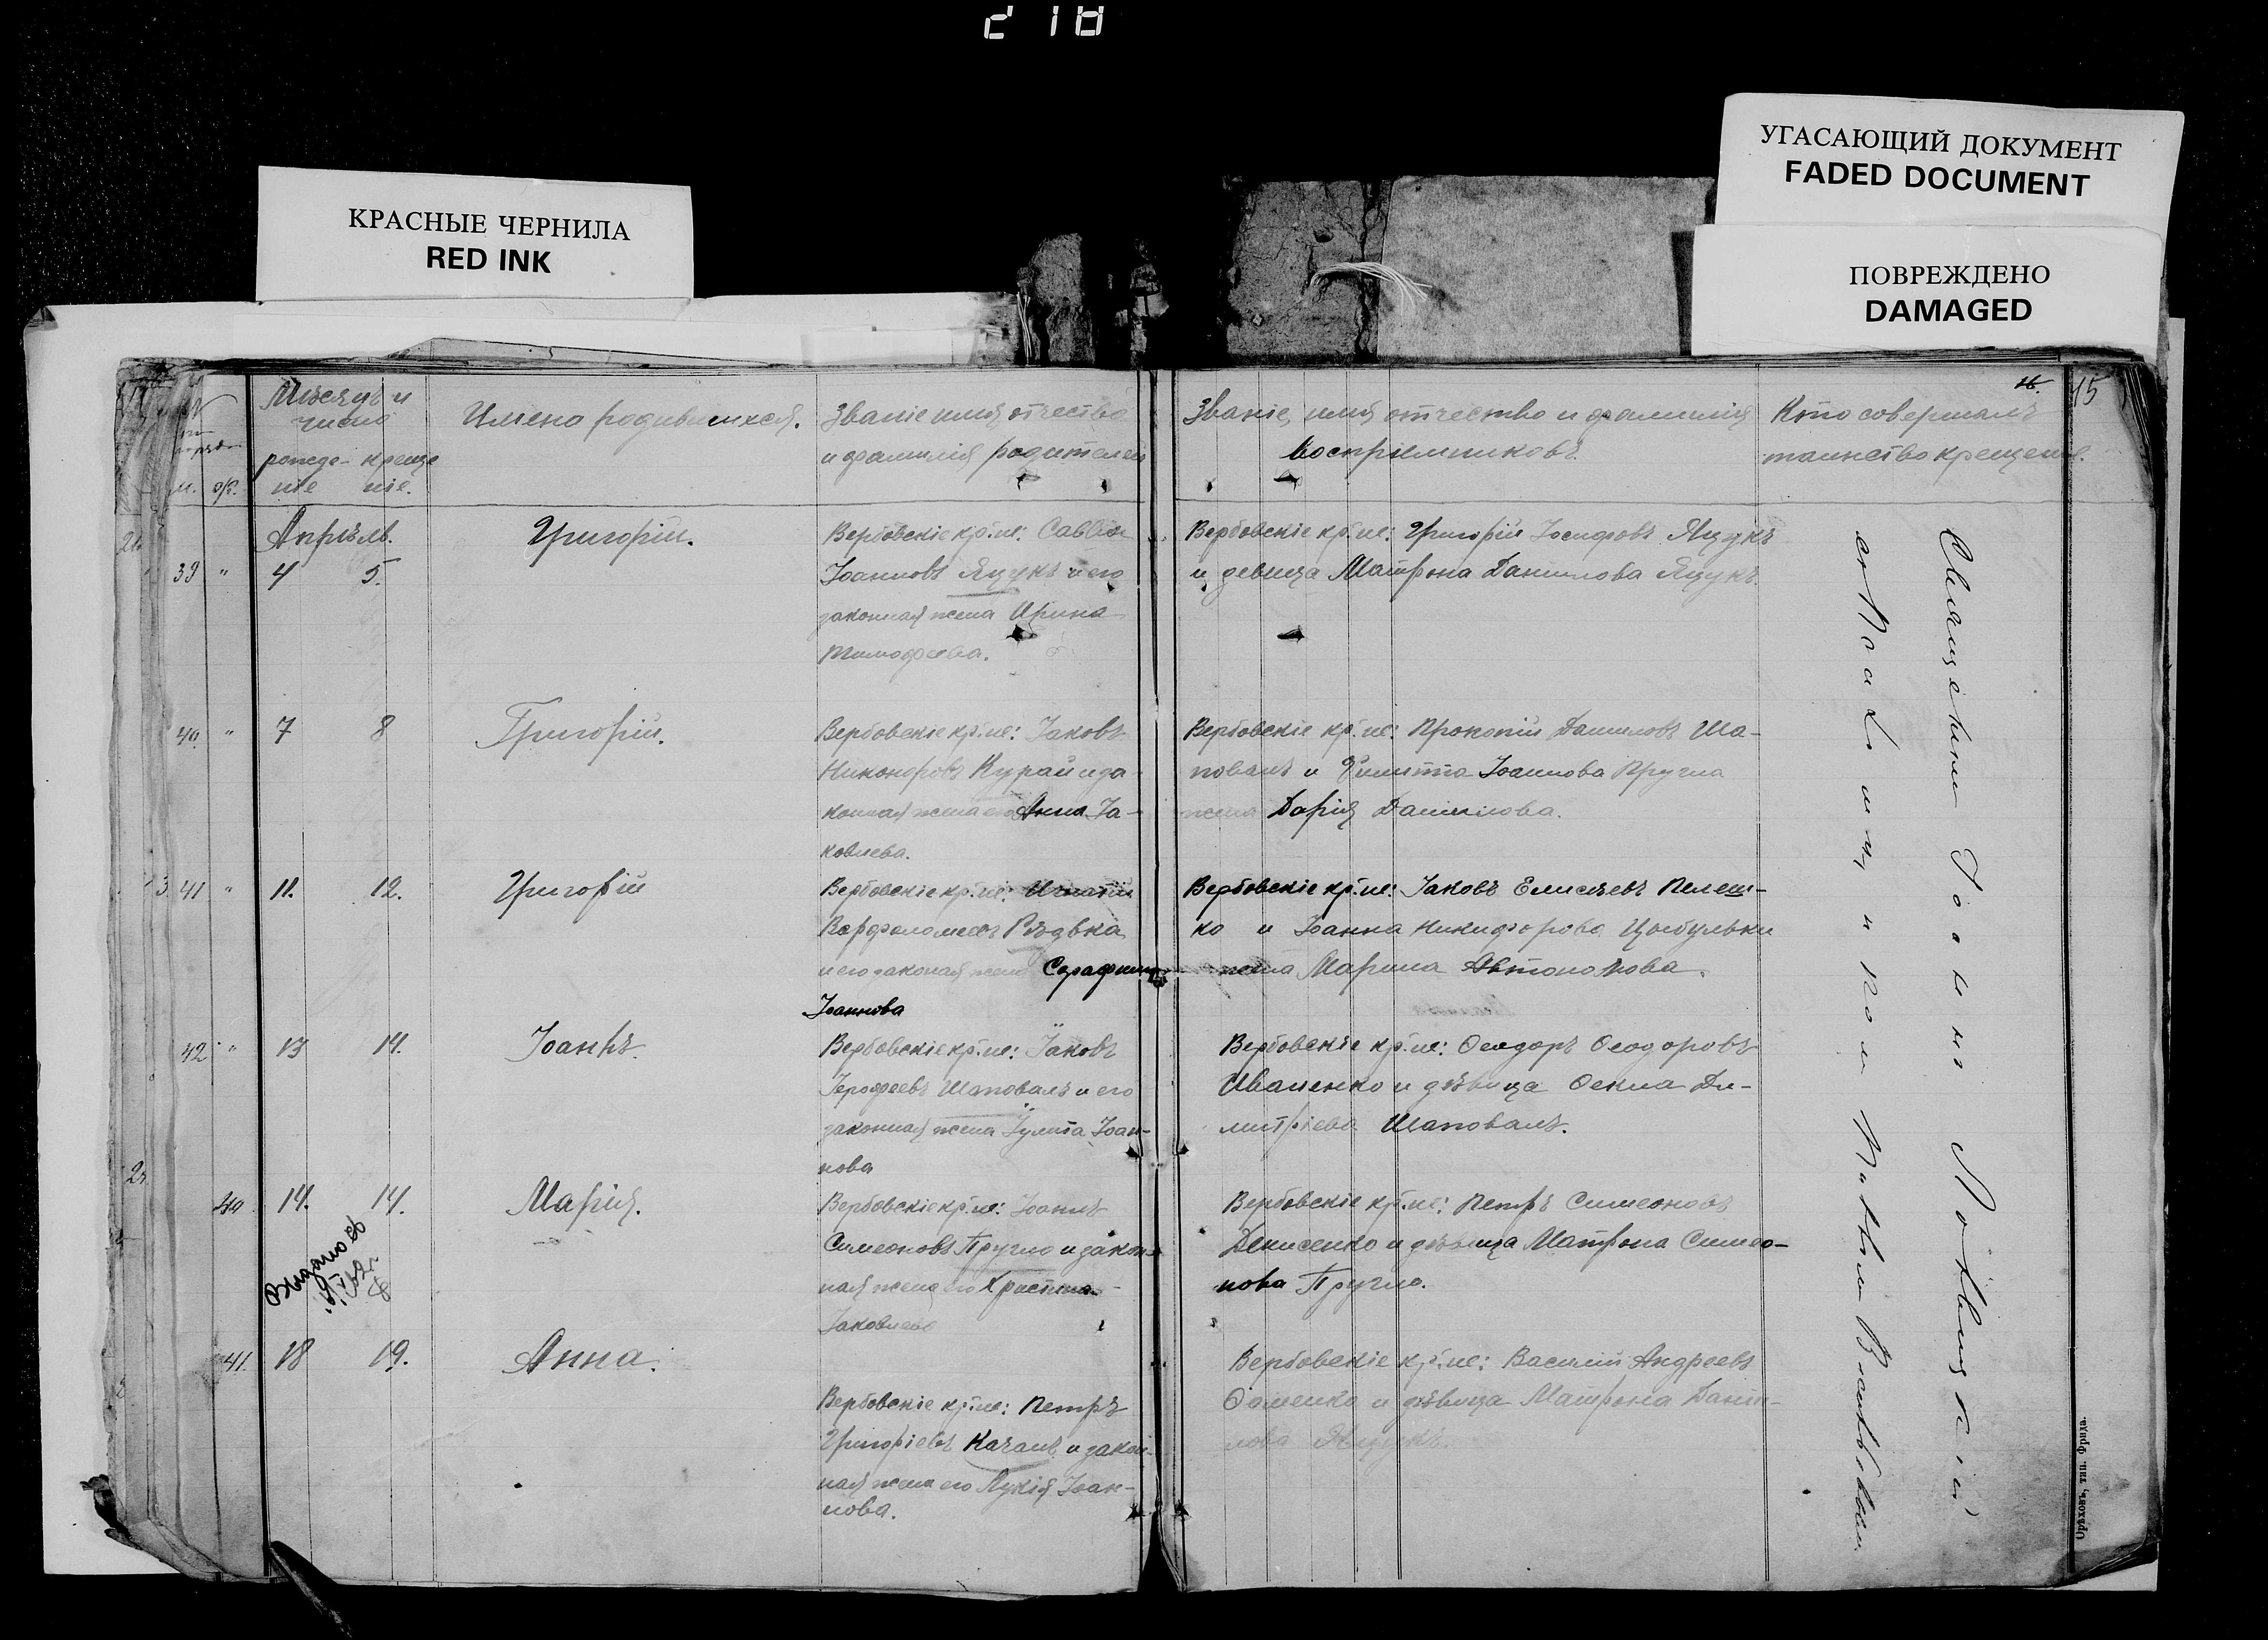 218
КРАСНЫЕ ЧЕРНИЛА
RED INK
УГАСАЮЩИЙ ДОКУМЕНТ
FADED DOCUMENT
ПОВРЕЖДЕНО
DAMAGED
15
Мѣсяцъ и
число
рожде- креще
ніе ніе.
м. ж.
Имена родившихся.
Званіе имя отчество
и фамилія родителей
Званіе, имя отчество и фамилія
воспріемниковъ.
Кто совершалъ
таинство крещенія.
Апрѣль.
39 " 4 5.
Григорій.
Вербовскіе кр.не: Савва
Іоанновъ Яцукъ и его
законная жена Ирина
Тимофеева.
Вербовскіе кр.не: Григорій Іосифовъ Яцукъ
и девица Матрона Данилова Яцукъ.
40. " 7 8
Григорій.
Вербовскіе кр.не: Іаковъ
Никоноровъ Курай и за-
конная жена его Анна Іа-
ковлева.
Вербовскіе кр.не: Прокопій Даниловъ Ша-
повалъ и Іоаннова Пругла
жена Дарія Даниилова.
41 " 11. 12.
Григорій
Вербовскіе кр.не: Игнатій
Варфоломеевъ Рѣдька
и его законая жена Серафима
Іоаннова
Вербовскіе кр.не: Іаковъ Елисѣевъ Пелеш-
ко и Іоанна Никифорова Цыбульки
жена Марина Автономова.
42 " 13 14.
Іоаннъ.
Вербовскіе кр.не: Іаковъ
Іерофеевъ Шаповалъ и его
законная жена Іулита Іоан-
нова
Вербовскіе кр.не: Ѳеодоръ Ѳеодоровъ
Иваненко и дѣвица Ѳекла Ди-
митріева Шаповалъ.
40 14. 14.
Марія.
Вербовскіе кр.не: Іоаннъ
Симеоновъ Пругло и закон-
ная жена его Христина
Іаковлева
Вербовскіе кр.не: Петръ Симеоновъ
Денисенко и дѣвица Матрона Симео-
нова Пругло.
Выдано
41. 18 19.
Анна.
Вербовскіе кр.не: Петръ
Григоріевъ Качанъ и закон-
ная жена его Лукія Іоан-
нова.
Вербовскіе кр.не: Василій Андреевъ
Ѳоменко и дѣвица Матрона Дани-
лова Яцукъ.
Священникъ Іоаннъ
съ Псаломщикомъ
Орѣховъ, тип. Фрида.